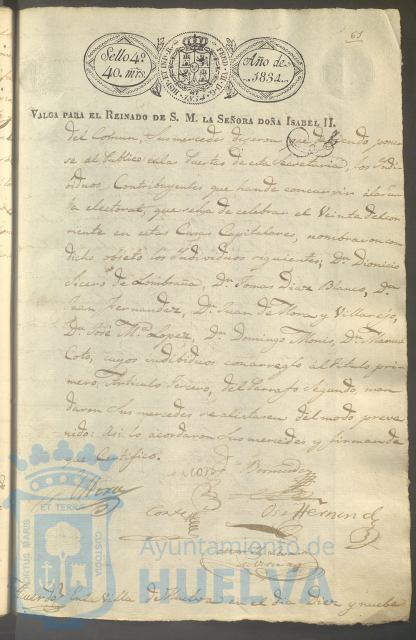 61
Sello 4º
40. mrs.
HISP. ET IND. R.
FERD. VII. D. G.
1834
Año de
1834.
VALGA PARA EL REINADO DE S. M. LA SEÑORA DOÑA ISABEL II.
del Comun, Sus mercedes dijeron que debiendo poner
se al publico en las Puertas de esta Secretaria, los Indi
viduos, Contribuyentes que han de concurrir á la Jun
ta electoral, que se ha de celebrar el Veinte del cor
riente en estas Casas Capitulares, nombraron con
dicho objeto los Individuos siguientes; Dn. Dionicio
de Lombraña, Dn. Tomas Diaz Blanco, Dn.
Juan Fernandez, Dn. Juan de Mora y Villarejo,
Dn. José Mª. Lopez, Dn. Domingo Monis, Dn. Manuel
Coto, cuyos individuos con arreglo al titulo pri
mero, Articulo tercero, del Parrafo Segundo, man
daron Sus mercedes se alistaran del modo preve
nido: Asi lo acordaron Sus mercedes y firman de
que Certifico.
Mora
Bermudez
Cortes
Hernand
ET TERRA
PORTUS MARIS
CUSTODIA
Ayuntamiento de
HUELVA
Acuerdo. En la Villa de Huelva en el dia Diez y nueve